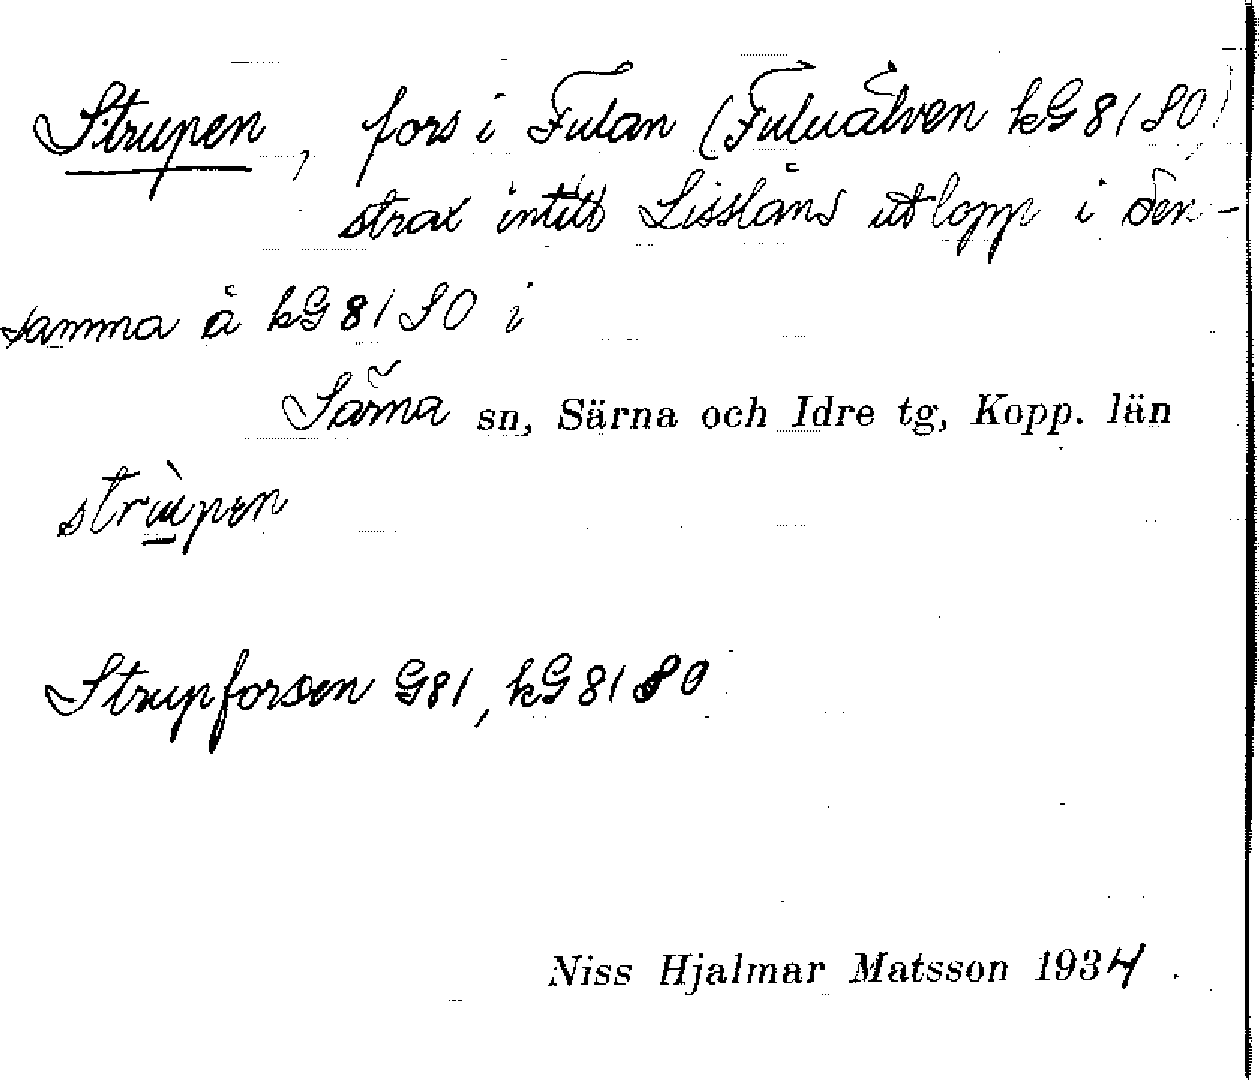 Strupen, fors i Fulan (Fuluälven kG 81 SO)
strax intill Lisslåns utlopp i den-
samma å kG 81 SO i
Särna sn, Särna och Idre tg, Kopp. län
strùpen
Strupforsen G81, kG 81 SO
Niss Hjalmar Matsson 1934.